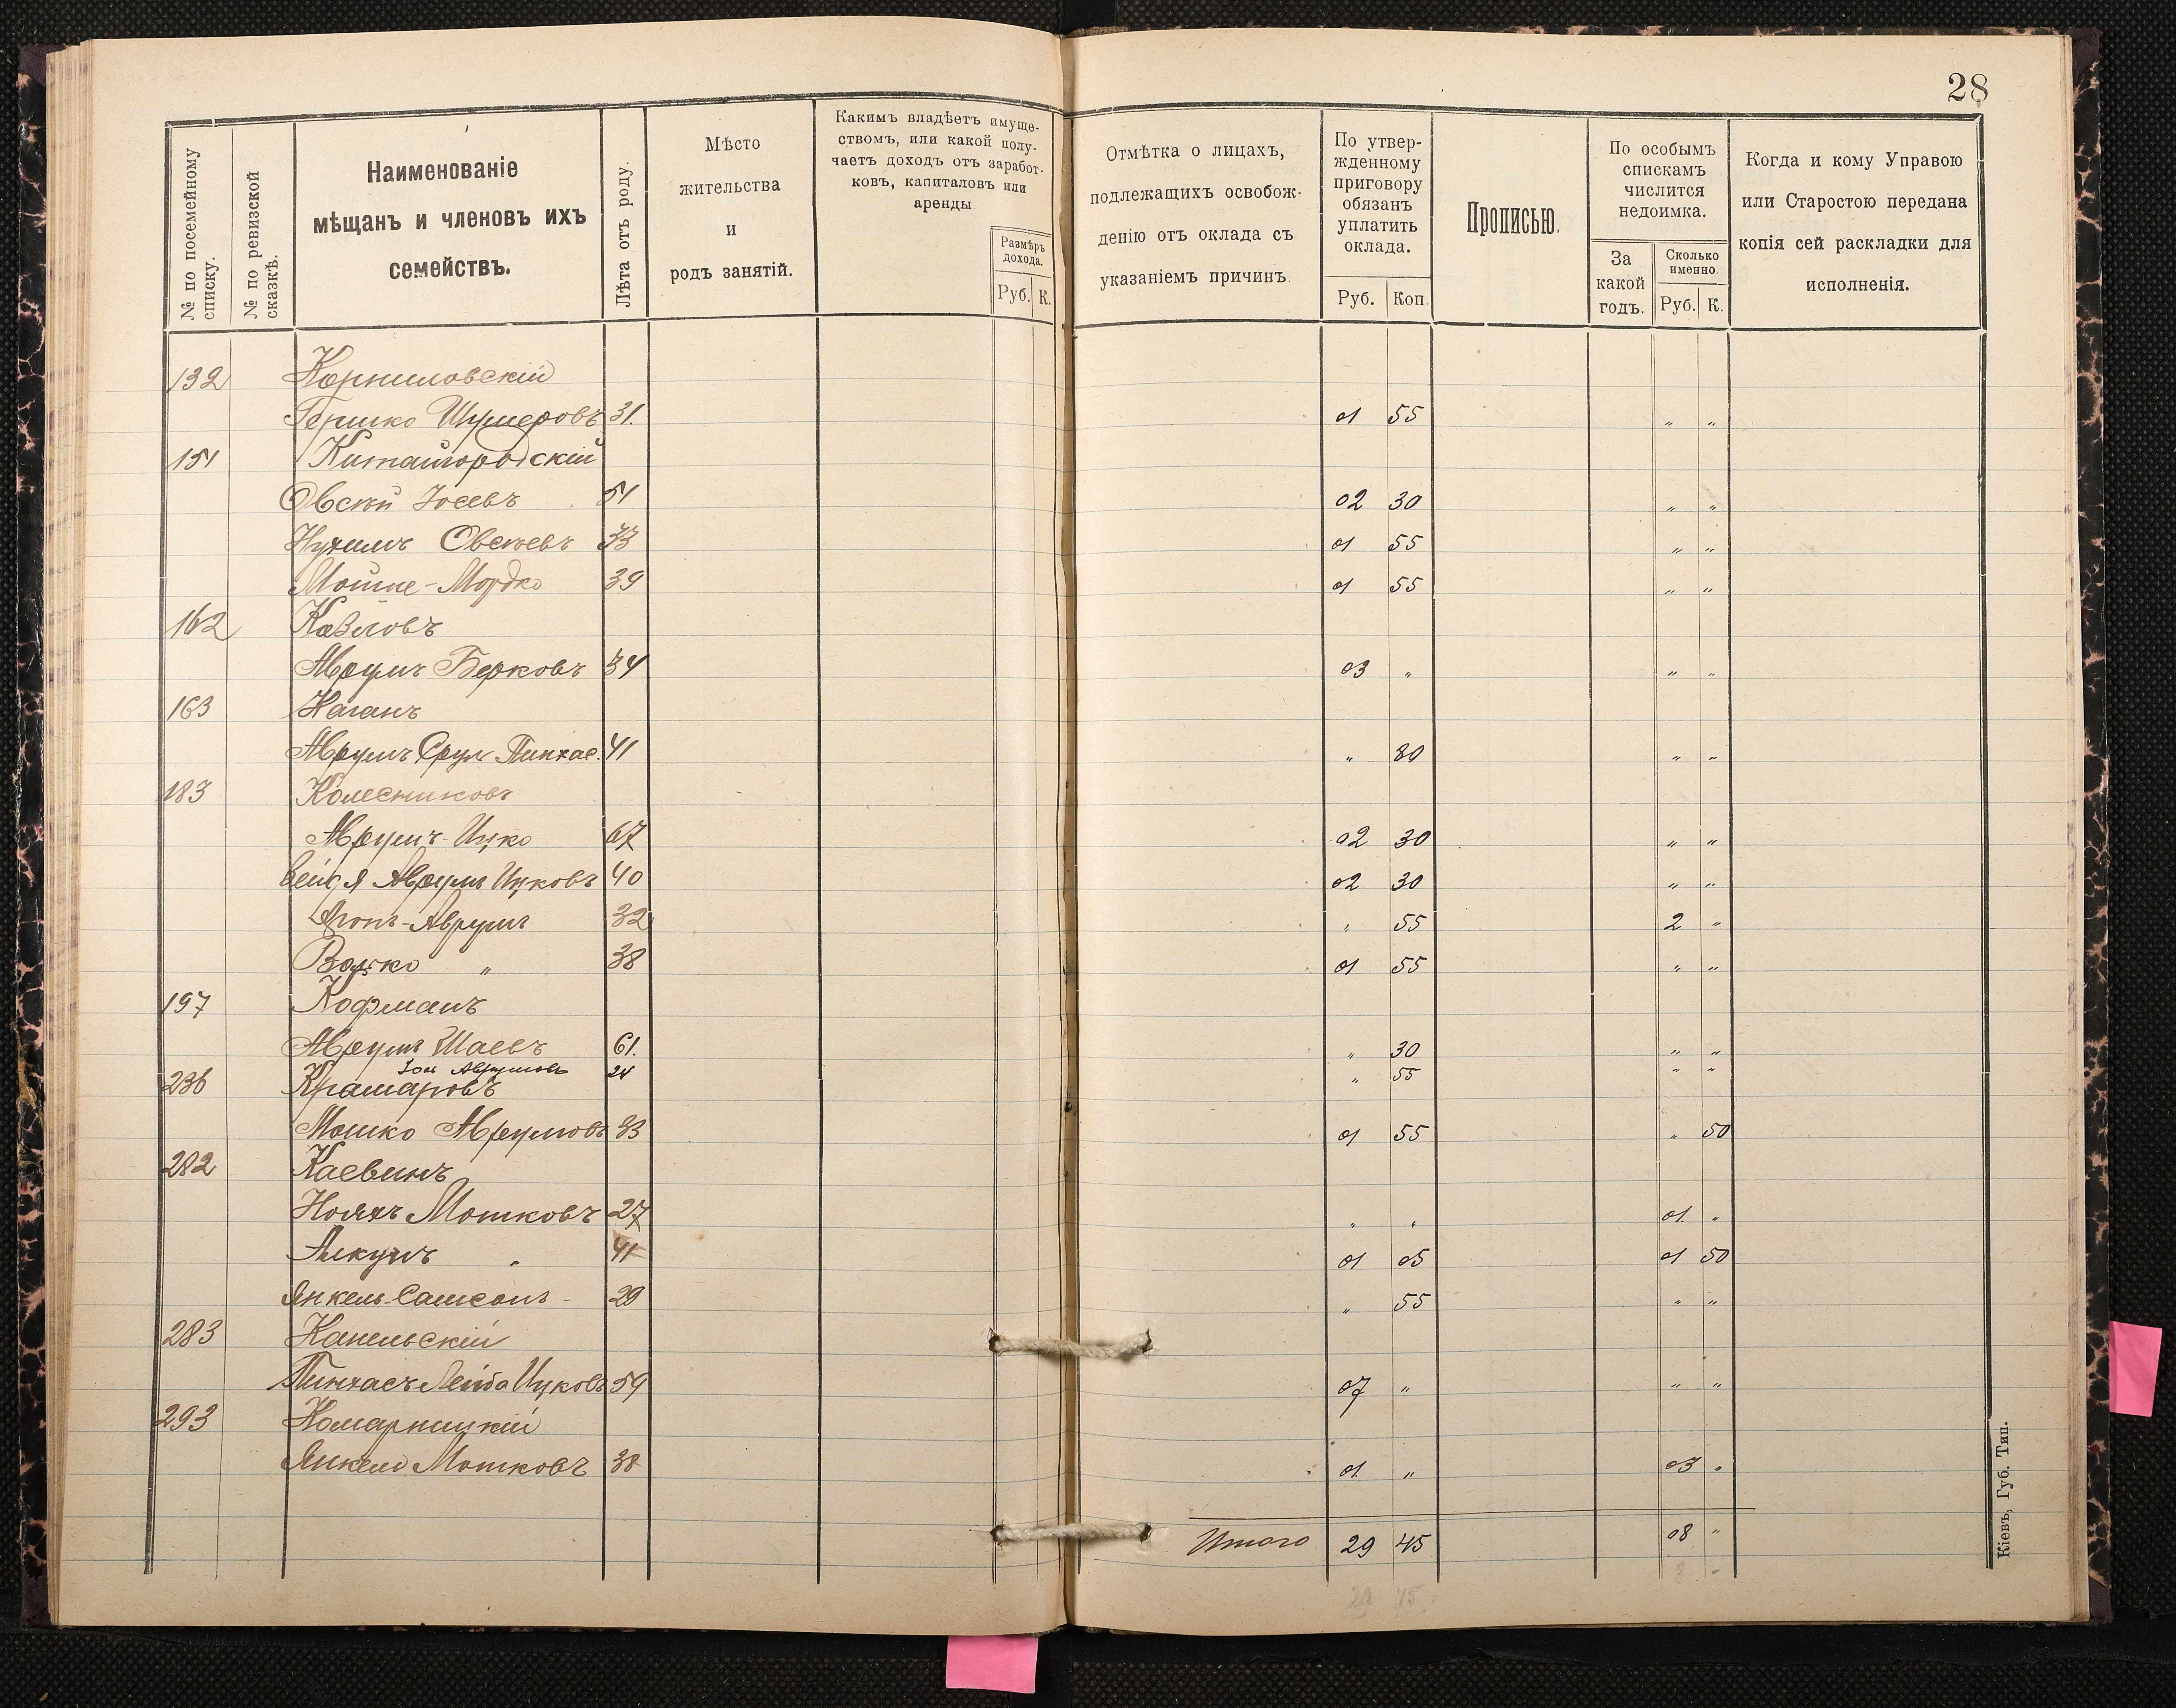 28
№ по посемейному списку.
№ по ревизской сказкѣ.
Наименованіе мѣщанъ и членовъ ихъ семействъ.
Лѣта отъ роду.
Мѣсто жительства и родъ занятій.
Какимъ владѣетъ имуществомъ, или какой получаетъ доходъ отъ заработковъ, капиталовъ или аренды
Размѣръ дохода.
Руб. К.
Отмѣтка о лицахъ, подлежащихъ освобожденію отъ оклада съ указаніемъ причинъ
По утвержденному приговору обязанъ уплатить оклада.
Руб. Коп.
Прописью.
По особымъ спискамъ числится недоимка.
За какой годъ.
Сколько именно.
Руб. К.
Когда и кому Управою или Старостою передана копія сей раскладки для исполненія.
132 Корниловскій
Гершко Шумеровъ 31. 01 55 " "
151 Китайгородскій
Овсей Іосевъ 51 02 30 " "
Нухимъ Овсеевъ 33 01 55 " "
Мойше-Мордко 39 01 55 " "
162 Козловъ
Аврумъ Берковъ 34 03 " " "
163 Каганъ
Аврумъ Срул Пинхас. 41 " 80 " "
183 Колесниковъ
Аврумъ-Ицко 67 02 30 " "
Аврумъ Ицковъ 40 02 30 " "
Аронъ-Аврумъ 32 " 55 2 "
Волько " 38 01 55 " "
197 Кофманъ
Аврумъ Шаевъ 61. " 30 " "
Іос Аврумовъ 24 " 55 " "
236 Крамаровъ
Мошко Аврумовъ 33 01 55 " 50
282 Каевинъ
Нояхъ Мошковъ 27 " " 01 "
" 41 01 05 01 50
Янкель-Самсонъ - 29 " 55 " "
283 Капельскій
Пинхасъ Лейба Ицковъ 59 07 " " "
293 Комарницкій
Янкель Мошковъ 38 01 " 03 "
Итого 29 45 08 "
29 45
Кіевъ, Губ. Тип.